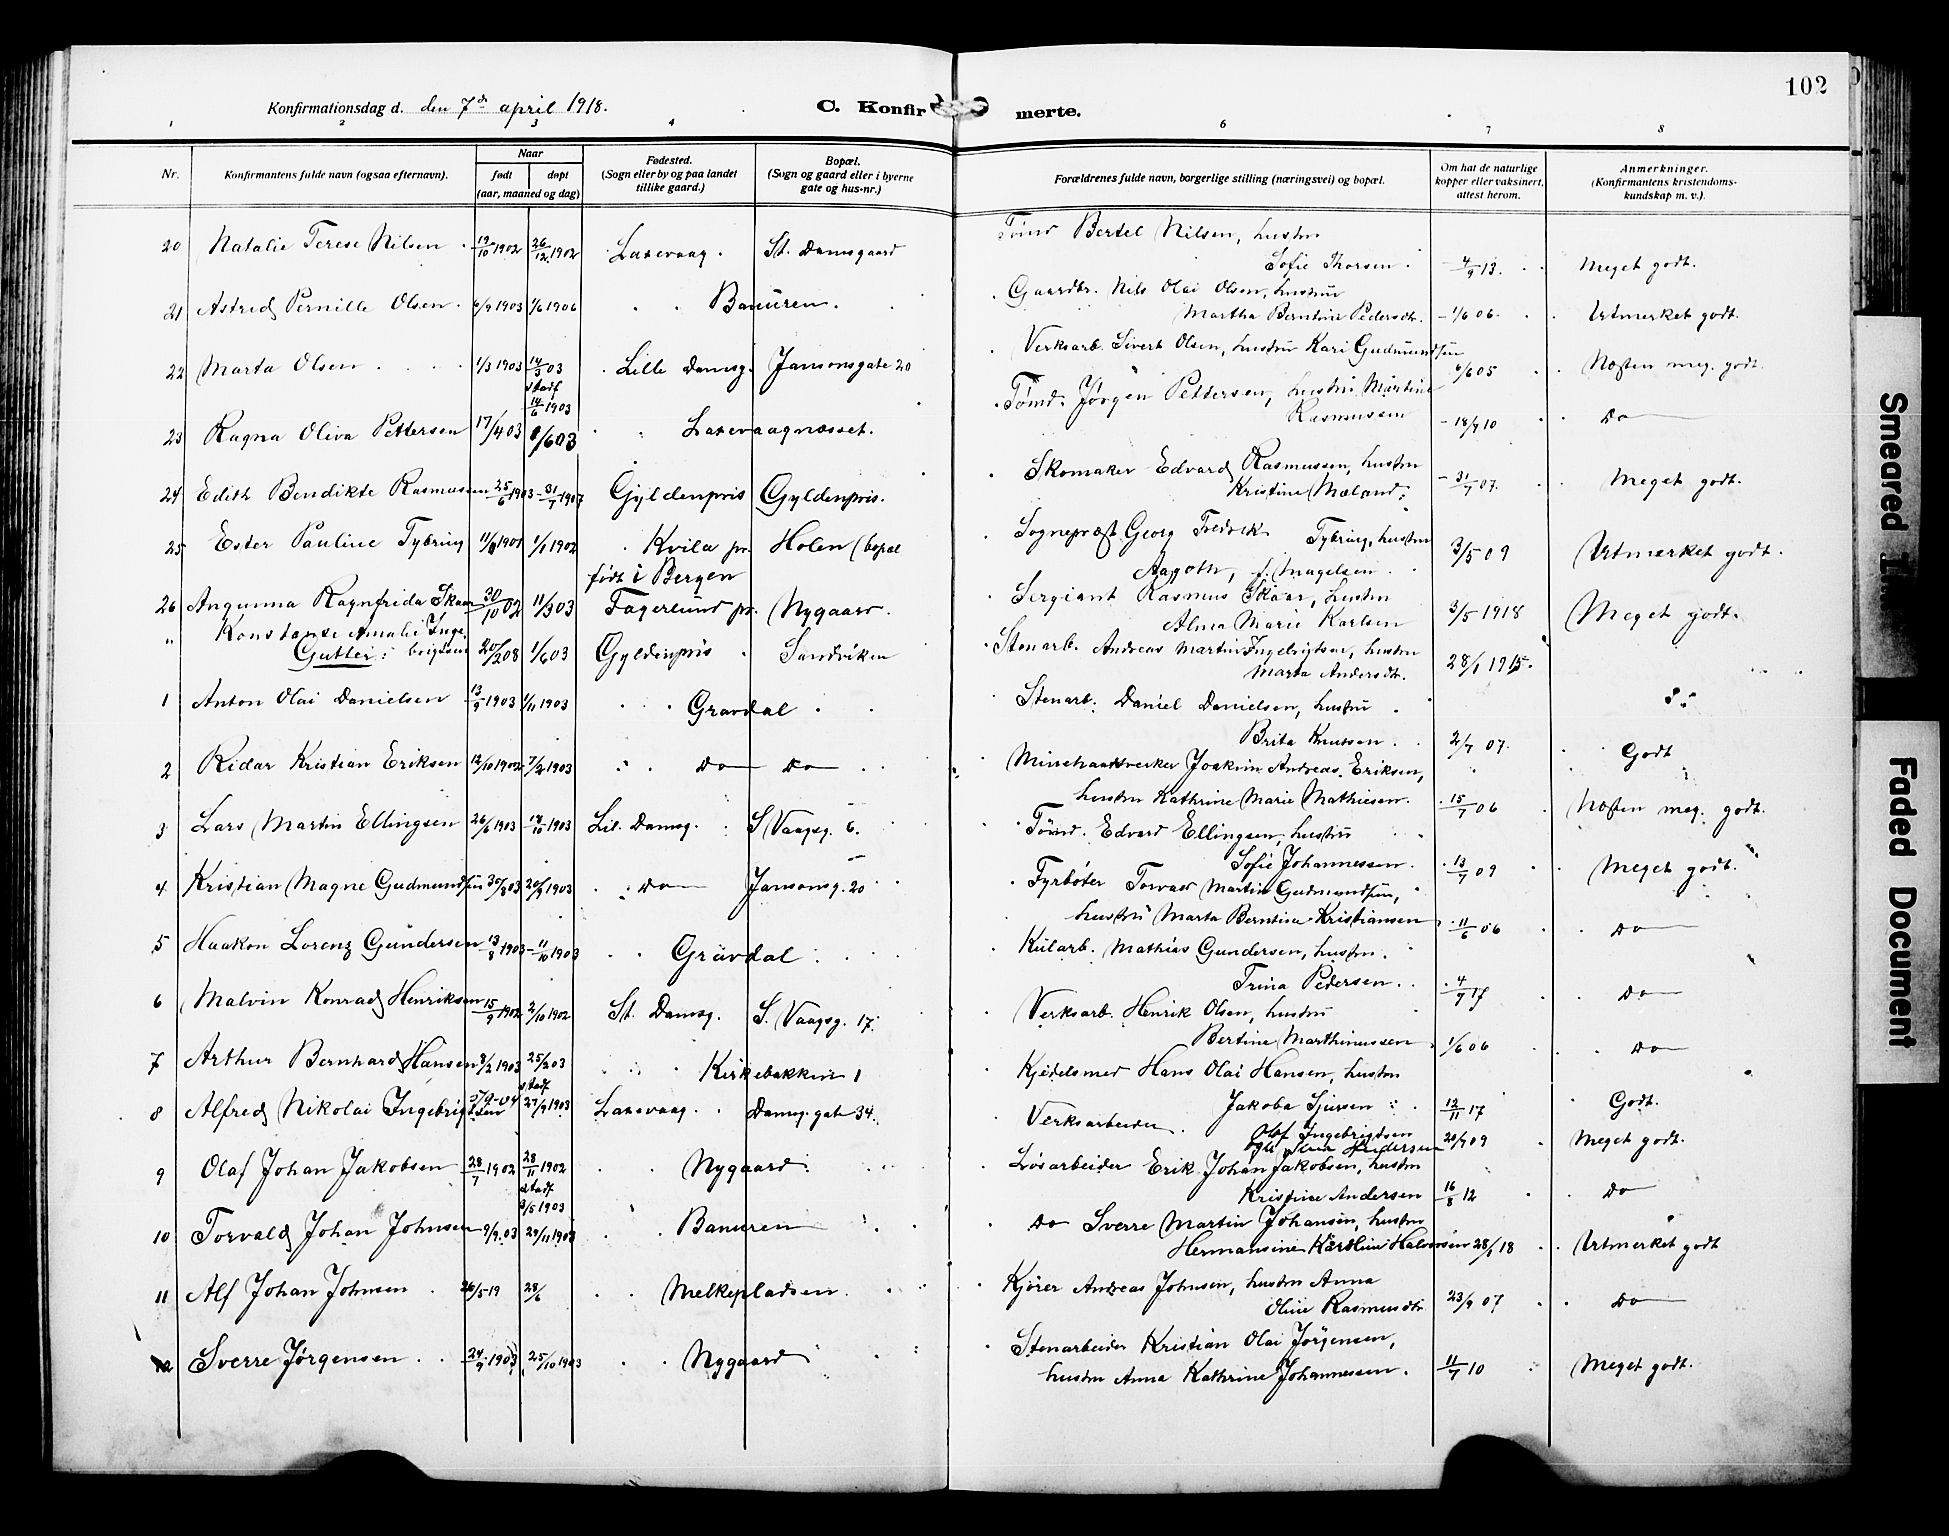 102
Konfirmationsdag d. den 7de april 1918. C. Konfirmerte.
1 2 3 4 6 7 8
Nr. Konfirmantens fulde navn (ogsaa efternavn). Naar født døpt (aar, maaned og dag) Fødested. (Sogn eller by og paa landet tillike gaard.) Bopæl. (Sogn og gaard eller i byerne gate og hus-nr.) Forældrenes fulde navn, borgerlige stilling (næringsvei) og bopæl. Om hat de naturlige kopper eller vaksinert, attest herom. Anmerkninger. (Konfirmantens kristendomskundskap m. v.).
20 Natalie Terese Nilsen 19/10 1902 26/12 1902 Laxevaag. St. Damsgaard Tømr Bertel Nilsen, hustru Sofie Thorsen. 4/9 13. Meget godt.
21 Astrid Pernille Olsen 6/9 1903 1/6 1906 Banuren. Gaardbr. Nils Olai Olsen, hustru Martha Berntine Pedersdtr. 1/6 06. Utmerket godt.
22 Marta Olsen 1/3 1903 14/3 03 stadf 14/6 1903 Lille Damsg. Jansonsgate 20 Verksarb. Sivert Olsen, hustru Kari Gudmundsen 6/6 05 Næsten meg. godt.
23 Ragna Oliva Pettersen 17/4 03 1/6 03 Laxevaagnæsset. Tømd. Jørgen Pettersen, hustru Martine Rasmussen 18/9 10 Do
24 Edith Bendikte Rasmussen 25/6 1903 31/7 1907 Gyldenpris Gyldenpris. Skomaker Edvard Rasmussen, hustru Kristine Mæland. 31/7 07. Meget godt.
25 Ester Pauline Tybring 11/9 1901 1/1 1902 Kvila pr. Holen (bopæl født i Bergen Sogneprest Georg Fredrik Tybring, hustru Aagoth, f. Magelsen 3/5 09 Utmerket godt.
26 Angunna Ragnfrida Skaar 30/10 02 11/3 03 Fagerlund pr. Nygaard. Sergiant Rasmus Skaar, hustru Alma Marie Karlsen 3/5 1918 Meget godt.
" Konstanse Amalie Ingebrigtsen 20/2 08 1/6 03 Gyldenpris Sandviken Stenarb. Andreas Martin Ingebrigtsen, hustru Marta Andersdt. 28/1 1915.
Gutter:
1 Anton Olai Danielsen 13/9 1903 1/11 1903 Gravdal Stenarb. Daniel Danielsen, hustru Brita Knutsen. 2/7 07. Godt
2 Ridar Kristian Eriksen 12/10 1902 7/2 1903 Do Do Minehaandverker Joakim Andreas Eriksen, hustru Kathrine Marie Mathiesen. 15/7 06 Næsten meg. godt.
3 Lars Martin Ellingsen 26/6 1903 14/10 1903 Lil. Damsg. S. Vaagsg. 6. Tømd. Edvard Ellingsen, hustru Sofie Johannessen. 13/7 09 Meget godt.
4 Kristian Magne Gudmundsen 30/8 03 20/9 1903 Do Jansonsg. 20 Fyrbøter Torvald Martin Gudmundsen, hustru Marta Berntina Kristiansen 11/6 06 Do
5 Haakon Lorenz Gundersen 13/8 1903 11/10 1903 Gravdal Kularb. Mathias Gundersen, hustru Trina Pedersen. 4/7 17 Do
6 Malvin Konrad Henriksen 15/9 1902 2/10 1902 St. Damsg. S. Vaagsg. 17. Verksarb. Henrik Olsen, hustru Bertine Marthinussen 1/6 06 Do
7 Arthur Bernhard Hansen 8/2 1903 25/2 03 Kirkebakken 1 Kjedelsmed Hans Olai Hansen, hustru Jakoba Sjursen 12/11 17 Godt.
8 Alfred Nikolai Ingebrigtsen stadf 27/9 1903 Laxevaag. Damsg. gate 34. Verksarbeider Olaf Ingebrigtsen 20/9 09 Meget godt.
9 Olaf Johan Jakobsen 28/7 1902 28/11 1902 stadf 3/5 1903 Nygaard. Løsarbeider Erik Johan Jakobsen, hustru Kristine Andersen 16/8 12 Do
10 Torvald Johan Johnsen 9/9 03 29/11 1903 Banuren Do Sverre Martin Johansen, hustru Hermansine Halvorsen 28/1 18 Utmerket godt
11 Alf Johan Johnsen 26/5 19 28/6 Melkepladsen. Kjører Andreas Johnsen, hustru Anna Oline Rasmusdtr 23/9 07 Do
12 Sverre Jørgensen 24/9 1903 25/10 1903 Nygaard Stenarbeider Kristian Olai Jørgensen, hustru Anna Kathrine Johannessen. 11/7 10 Meget godt.
Smeared
Faded Document